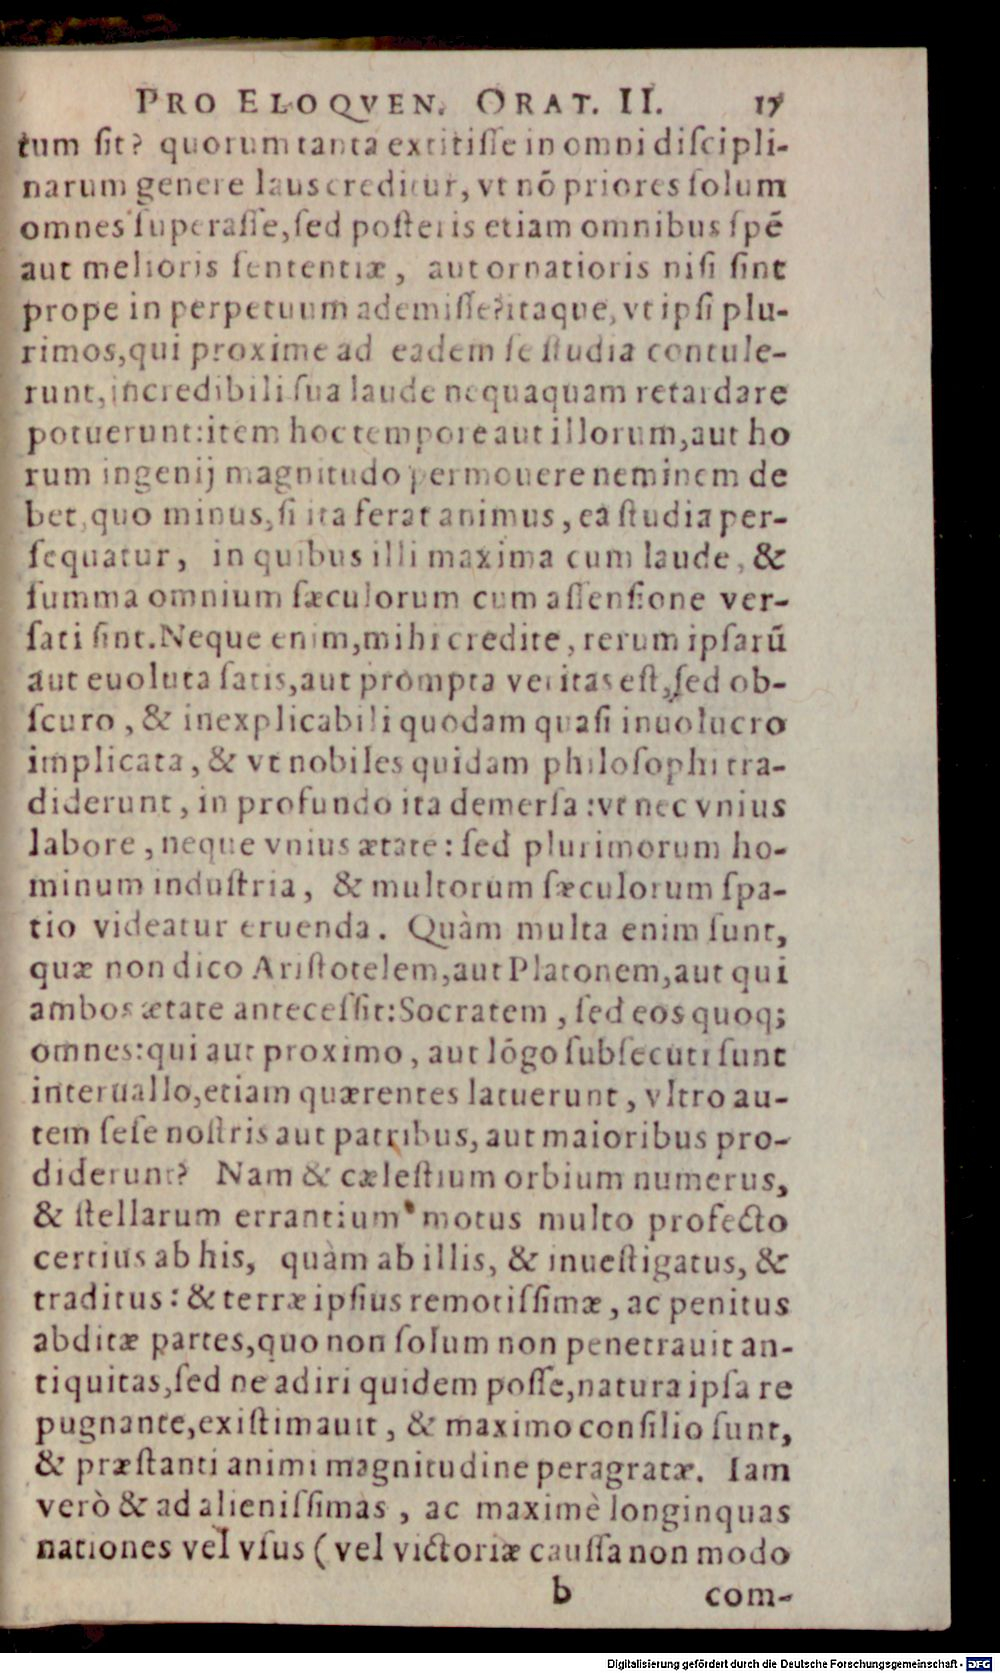 PRO ELOQVEN. ORAT. II. 17
tum ſit? quorum tanta extitiſſe in omni diſcipli-
narum genere laus creditur, vt nõ priores ſolum
omnes ſuperaſſe, ſed poſteris etiam omnibus ſpẽ
aut melioris ſententiæ, aut ornatioris niſi ſint
prope in perpetuum ademiſſe? itaque, vt ipſi plu-
rimos, qui proxime ad eadem ſe ſtudia contule-
runt, incredibili ſua laude nequaquam retardare
potuerunt: item hoc tempore aut illorum, aut ho
rum ingenij magnitudo permouere neminem de
bet, quo minus, ſi ita ferat animus, ea ſtudia per-
ſequatur, in quibus illi maxima cum laude, &
ſumma omnium ſæculorum cum aſſenſione ver-
ſati ſint. Neque enim, mihi credite, rerum ipſarũ
aut euoluta ſatis, aut prompta veritas eſt, ſed ob-
ſcuro, & inexplicabili quodam quaſi inuolucro
implicata, & vt nobiles quidam philoſophi tra-
diderunt, in profundo ita demerſa: vt nec vnius
labore, neque vnius ætate: ſed plurimorum ho-
minum induſtria, & multorum ſæculorum ſpa-
tio videatur eruenda. Quàm multa enim ſunt,
quæ non dico Ariſtotelem, aut Platonem, aut qui
ambos ætate anteceſſit: Socratem, ſed eos quoq;
omnes: qui aut proximo, aut lõgo ſubſecuti ſunt
interuallo, etiam quærentes latuerunt, vltro au-
tem ſeſe noſtris aut patribus, aut maioribus pro-
diderunt? Nam & cæleſtium orbium numerus,
& ſtellarum errantium motus multo profecto
certius ab his, quàm ab illis, & inueſtigatus, &
traditus: & terræ ipſius remotiſſimæ, ac penitus
abditæ partes, quo non ſolum non penetrauit an-
tiquitas, ſed ne adiri quidem poſſe, natura ipſa re
pugnante, exiſtimauit, & maximo conſilio ſunt,
& præſtanti animi magnitudine peragratæ. Iam
verò & ad alieniſſimas, ac maximè longinquas
nationes vel vſus (vel victoriæ cauſſa non modo
b com-
Digitalisierung gefördert durch die Deutsche Forschungsgemeinschaft - DFG